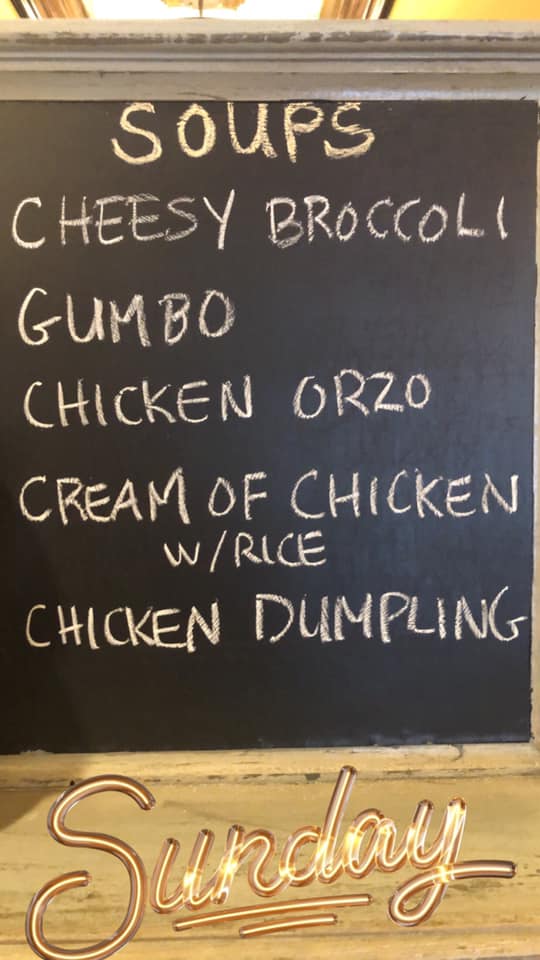 SOUPS
CHEESY BROCCOLI
GUMBO
CHICKEN ORZO
CREAM OF CHICKEN
W/RICE
CHICKEN DUMPLING
Sunday